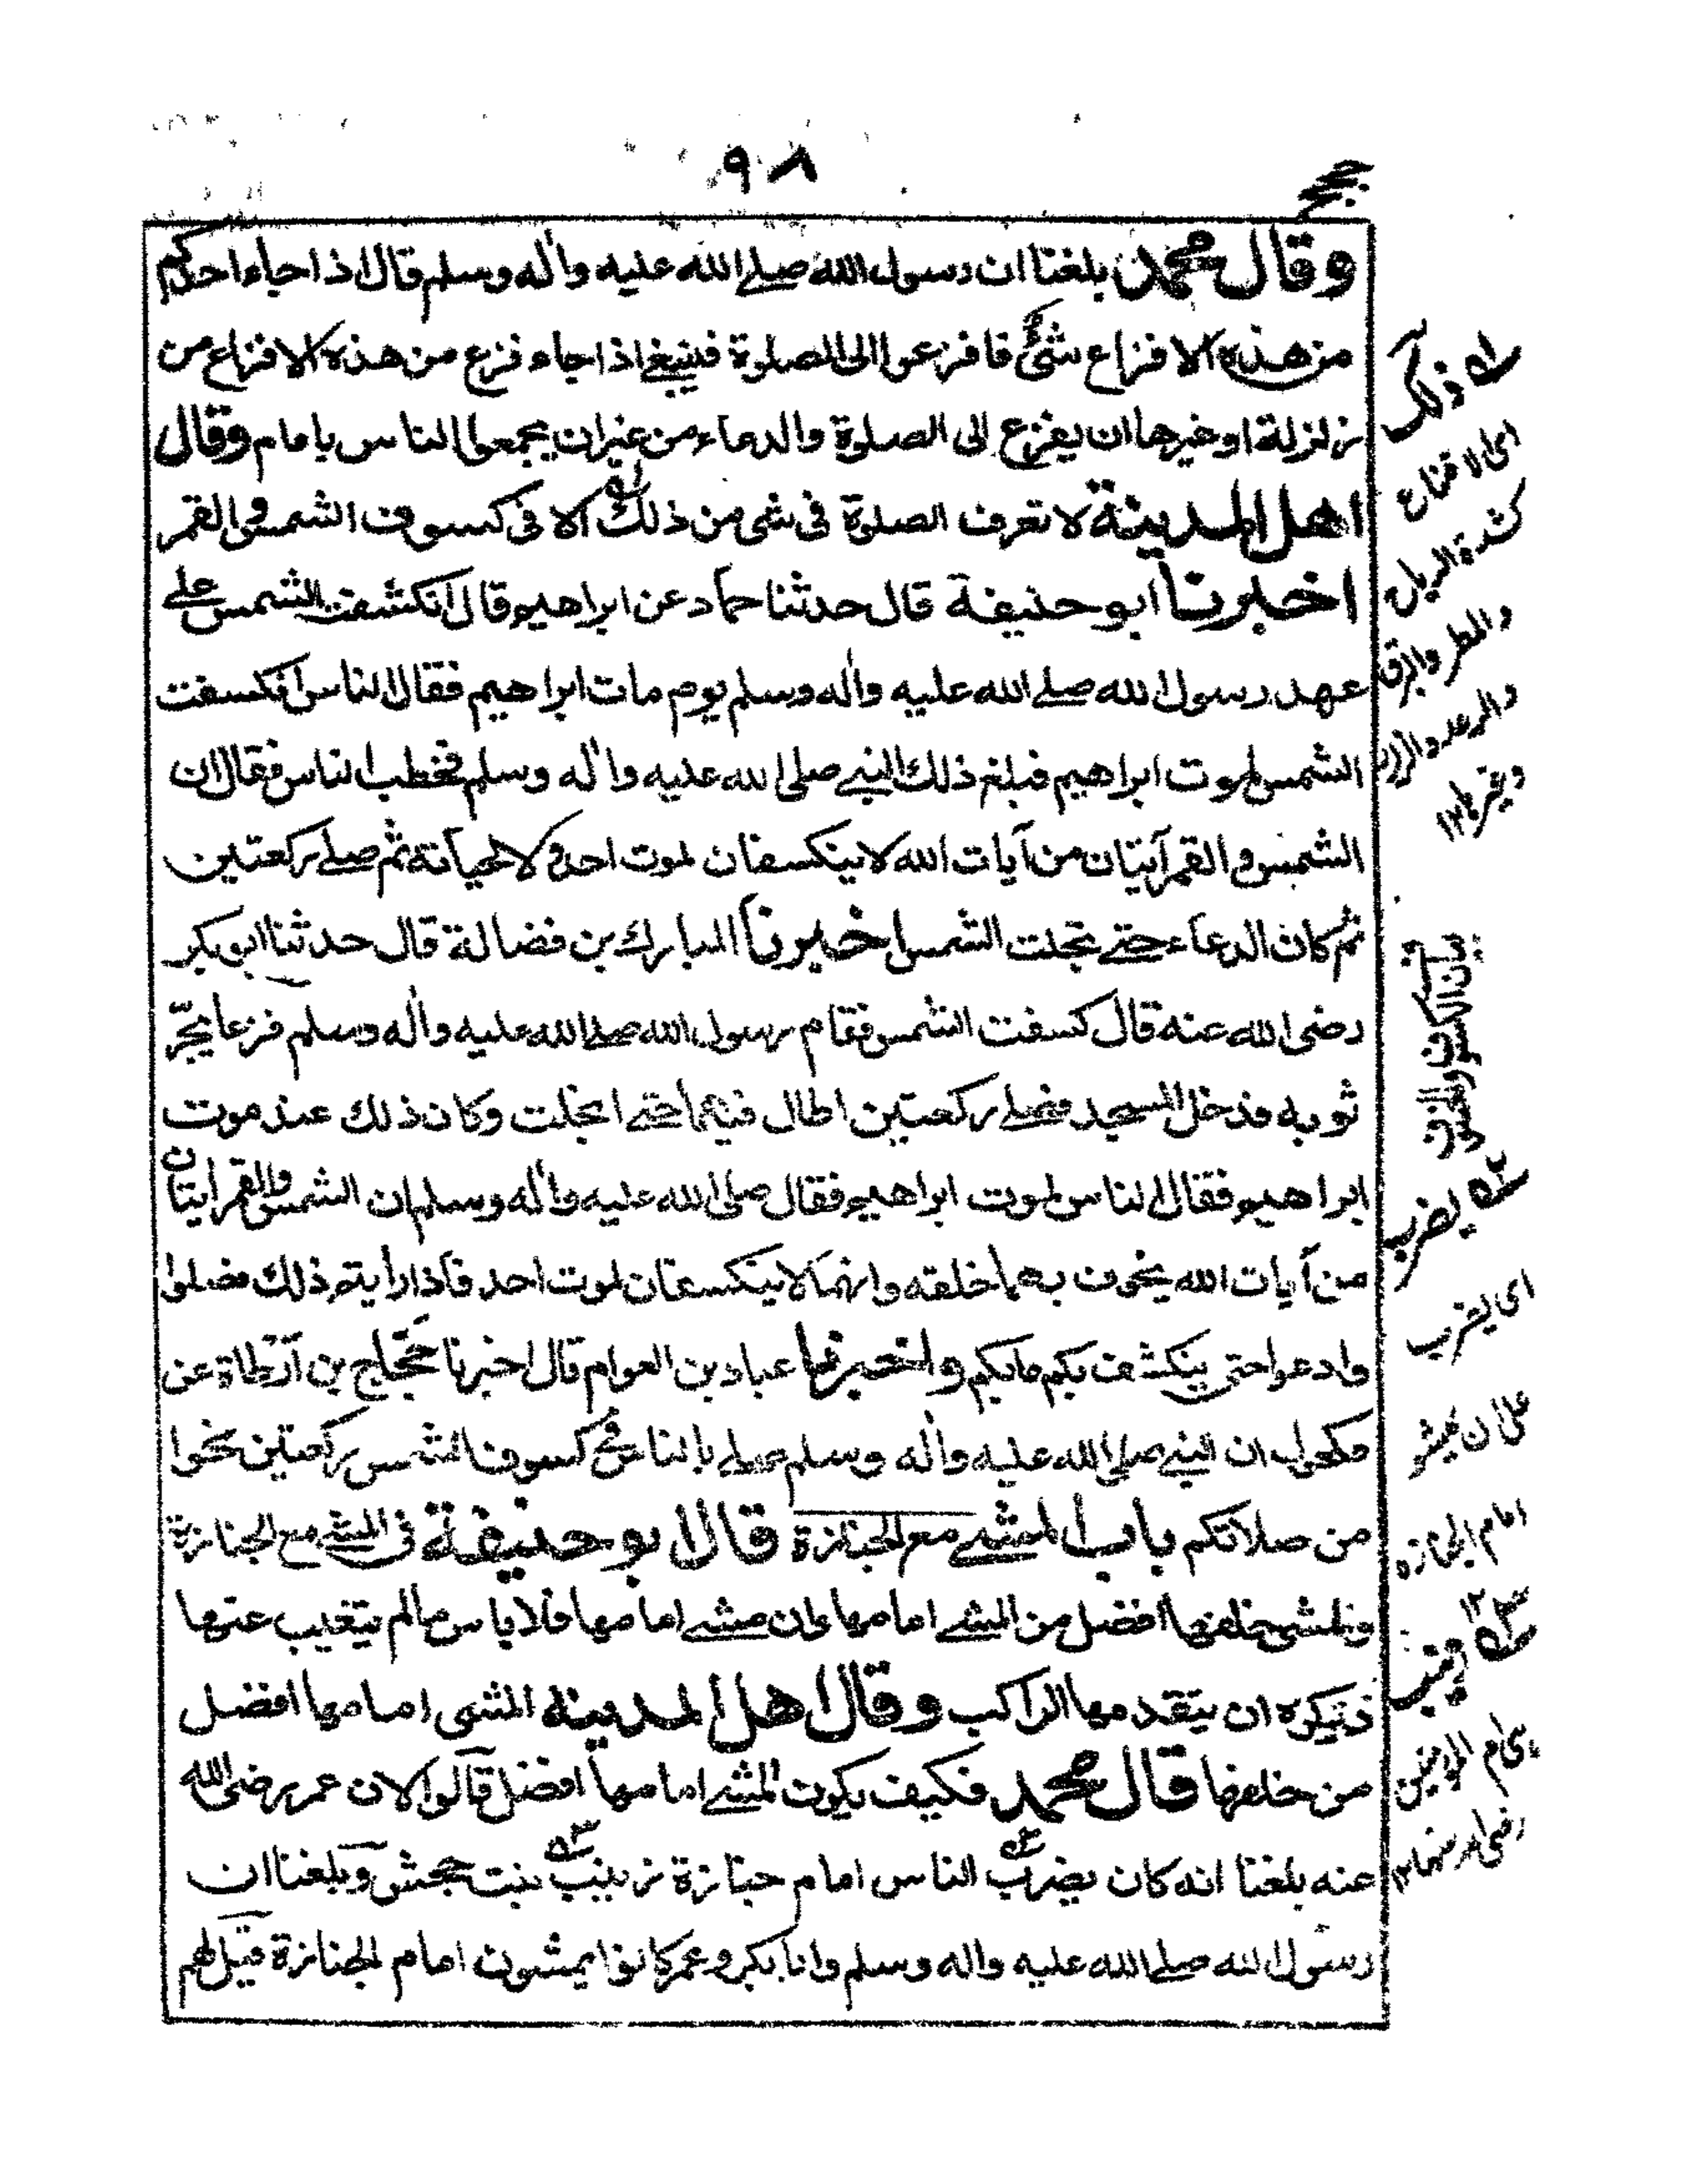 ٩٨
حجج
وقال محمد بلغنا ان رسول الله صلے الله عليه واٰله وسلم قال اذا جاء احدكم
من هذه الافزاع شئ فافزعوا الى الصلوة فينبغے اذا جاء فزع من هذه الافزاع من
زلزلة او غيرها ان يفزع الى الصلوة والدعاء من غير ان يجمعوا الناس بامام وقال
اهل المدينة لا نعرف الصلوة فى شى من ذلك الا فى كسوف الشمس والقمر
اخبرنا ابو حنيفة قال حدثنا حماد عن ابراهيم قال انكشفت الشمس على
عهد رسول الله صلے الله عليه واٰله وسلم يوم مات ابراهيم فقال الناس انكسفت
الشمس لموت ابراهيم فبلغ ذلك النبے صلى الله عليه واٰله وسلم فخطب الناس فقال ان
الشمس والقمر آيتان من آيات الله لا ينكسفان لموت احد ولا لحياته ثم صلے ركعتين
ثم كان الدعاء حتے تجلت الشمس اخبرنا المبارك بن فضالة قال حدثنا ابو بكر
رضى الله عنه قال كسفت الشمس فقام رسول الله صلے الله عليه واٰله وسلم فزعا يجرّ
ثوبه فدخل المسجد فصلے ركعتين اطال فيهما حتے انجلت وكان ذلك عند موت
ابراهيم فقال الناس لموت ابراهيم فقال صلى الله عليه واٰله وسلم ان الشمس والقمر آيتان
من آيات الله يخوف بهما خلقه وانهما لا ينكسفان لموت احد فاذا رايتم ذلك فصلوا
وادعوا حتى ينكشف بكم ما بكم واخبرنا عباد بن العوام قال اخبرنا حجاج بن ارطاة عن
مكحول ان النبے صلى الله عليه واٰله وسلم صلے بالناس فى كسوف الشمس ركعتين نحوا
من صلاتكم باب المشے مع الجنازة قال ابو حنيفة فى المشے مع الجنازة
والمشى خلفها افضل من المشے امامها وان مشے امامها فلا باس ما لم يتغيب عنها
ونكره ان يتقدمها الراكب وقال اهل المدينة المشى امامها افضل
من خلفها قال محمد فكيف يكون المشے امامها افضل قالوا لان عمر رضى الله
عنه بلغنا انه كان يضرب الناس امام جنازة زينب بنت جحش وبلغنا ان
رسول الله صلے الله عليه واله وسلم وابا بكر وعمر كانوا يمشون امام الجنازة قيل لهم
ـه ذلك
اى الافزاع
كشدة الرياح
والمطر والبرق
والرعد والزلزلة
وغيرها ١٢
ـه يضرب
اى يضرب
على ان يمشوا
امام الجنازه
١٢
ـه زينب
ام المومنين
رضى الله عنها ١٢